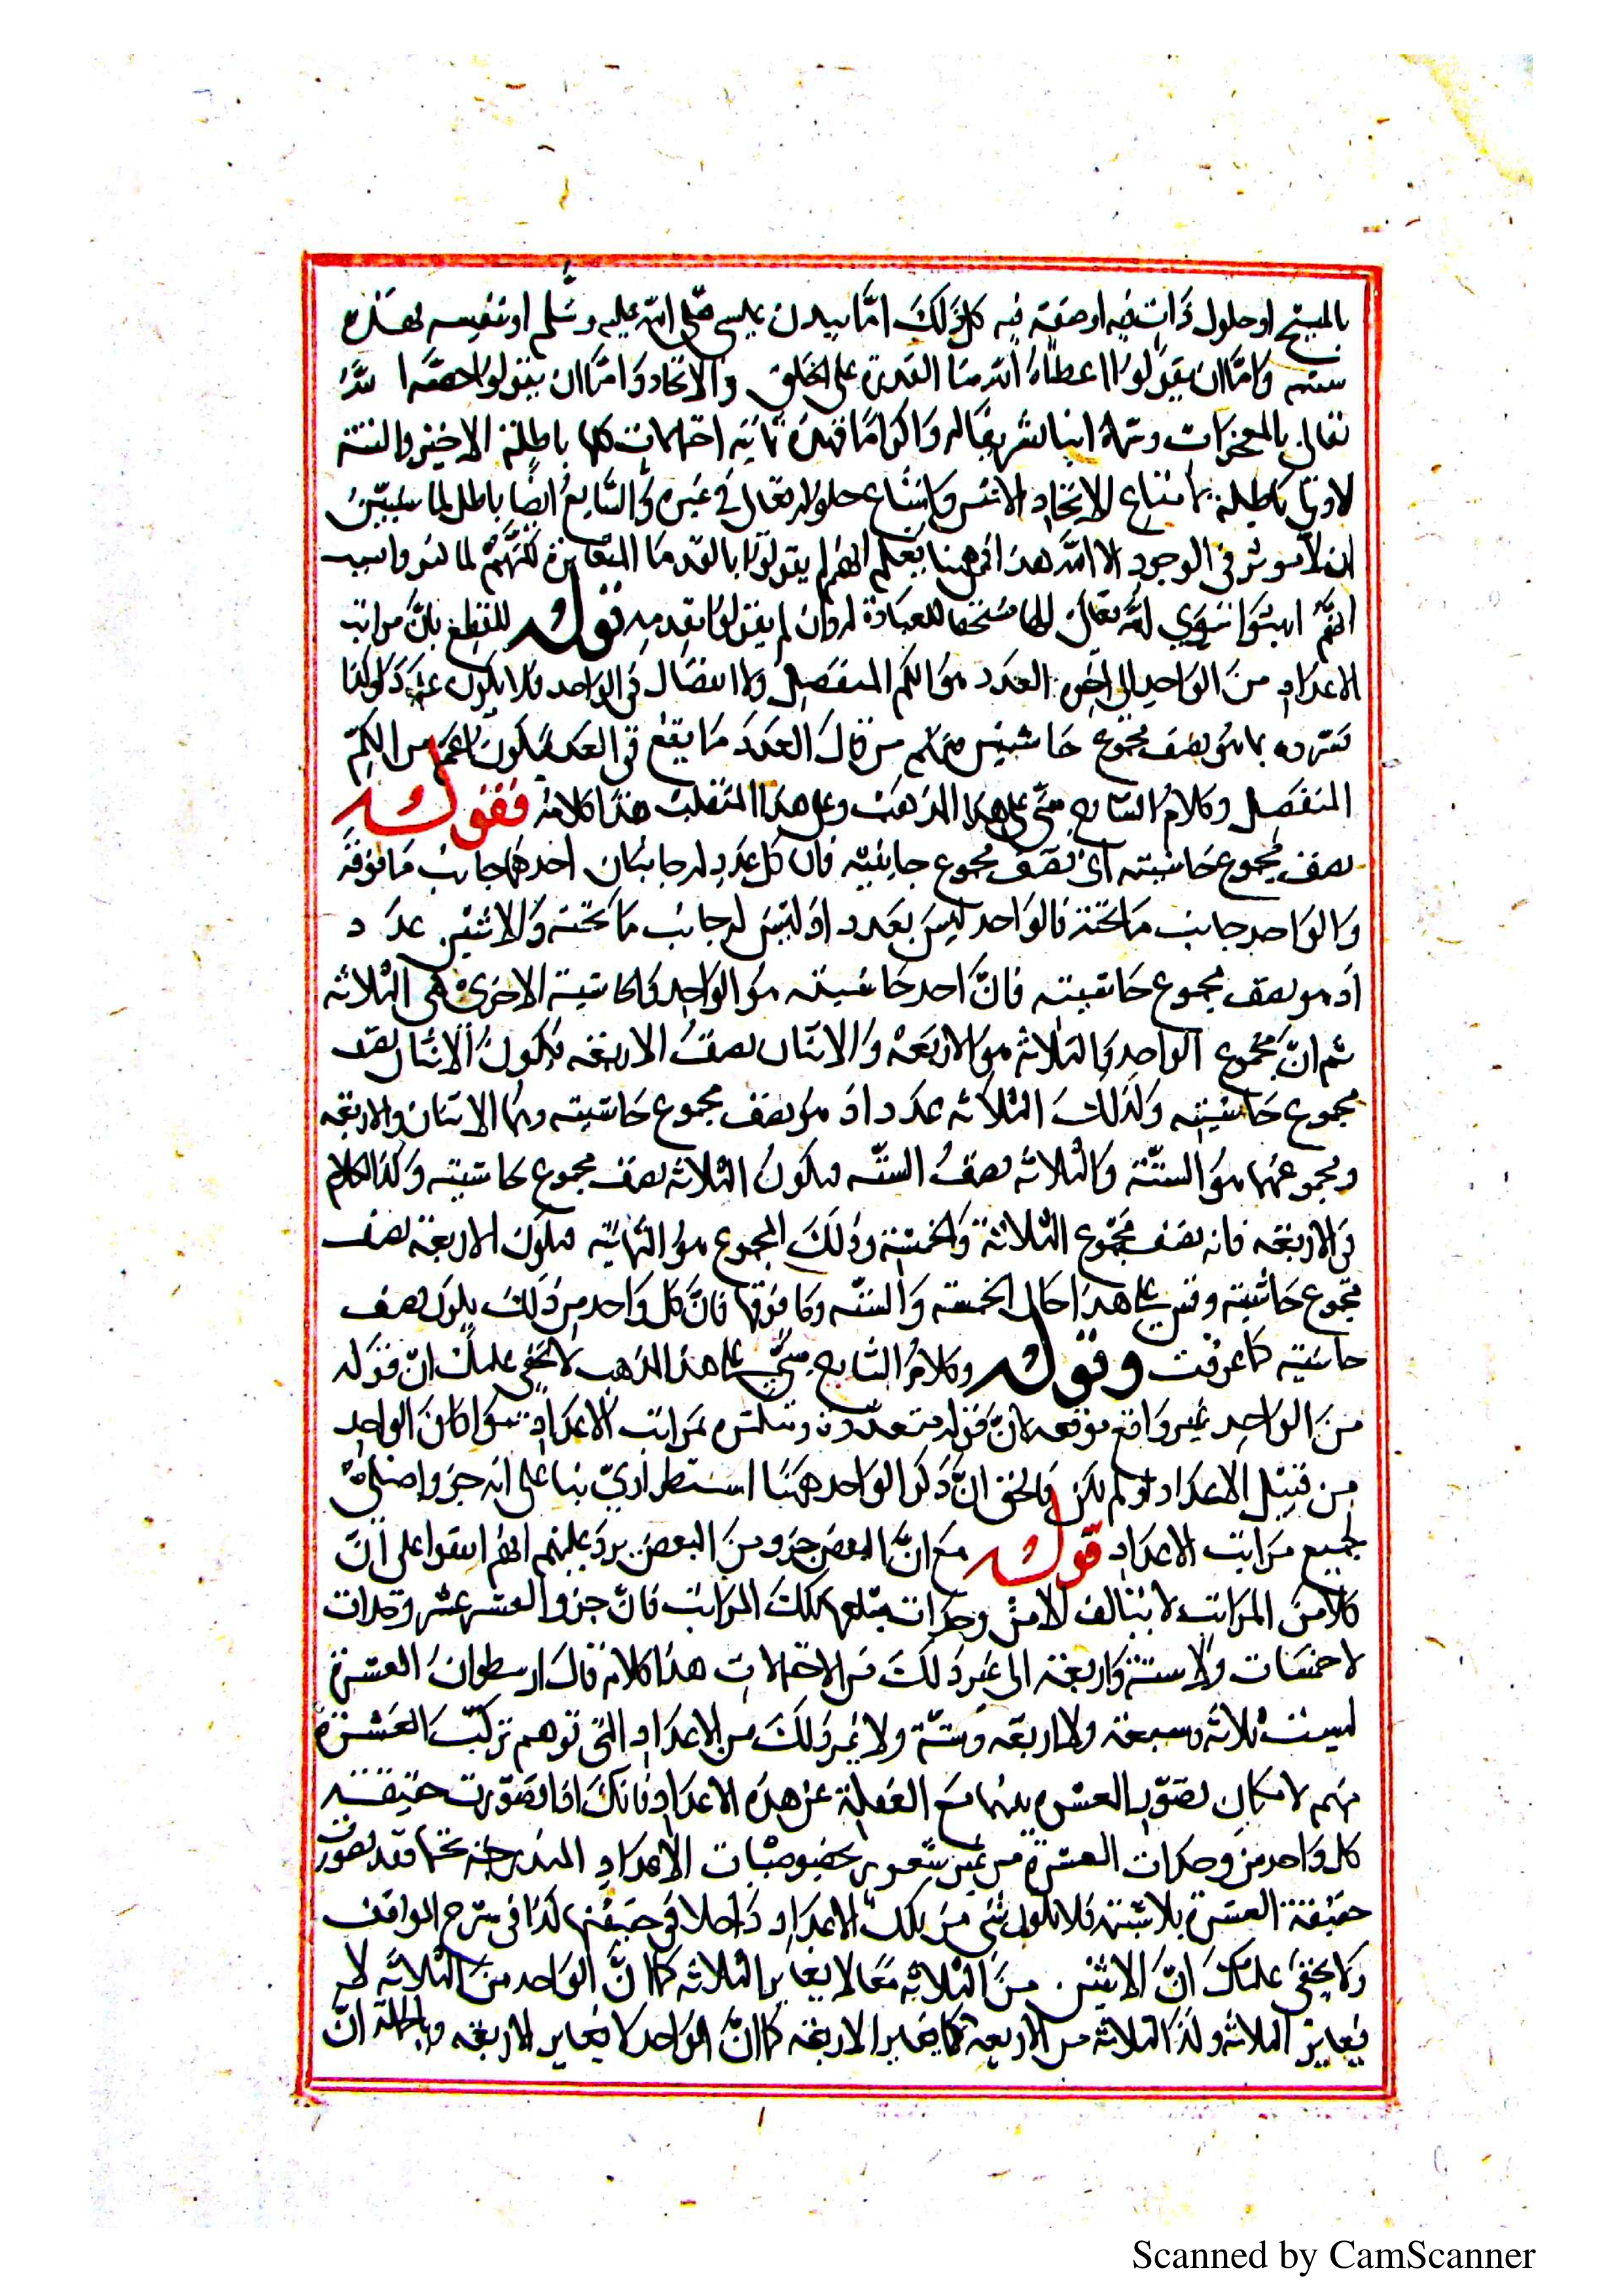 بالمسيح او حلول ذات فيه او صفة فيه كل ذلك امّا ببدن عيسى صلى الله عليه وسلم او بنفسه فهذه
ستة وامّا ان يقولوا اعطاه الله القدرة على الخلق والاتحاد وامّا ان يقولوا خصه الله
تعالى بالمعجزات وسماه ابنا تشريفا له واكراما فهذه ثمانية احتمالات كلها باطلة الا الاخير والستة
الاولى باطلة بامتناع الاتحاد الاثنين وامتناع حلوله تعالى في غيره والسابع ايضا باطل لما سنبين
ان لا موثر في الوجود الا الله هذا فمن ههنا يعلم انهم لم يقولوا بالقدما المتغايرة لكنهم لما
انهم اثبتوا سوى الله تعالى الها مستحقا للعبادة له وان لم يقولوا بقدمه قوله للقطع بانّ مراتب
الاعداد من الواحد الى اخره العدد هو الكم المنفصل ولا انفصال في الواحد فلا يكون عددا وكذا
نفسره بما هو نصف مجموع حاشيتيه منهم من قال العدد ما يقع في العد فيكون اعم من الكم
المنفصل وكلام الشارح مبني على هذا المذهب وعلى هذا هذا كلامه فقوله
نصف مجموع حاشيته اى نصف مجموع جانبيه فان كل عدد له جانبان احدهما جانب ما فوقه
والواحد جانب ما تحته فالواحد ليس بعدد اذ ليس له جانب ما تحته والاثنين عدد
اذ هو نصف مجموع حاشيته فانّ احد حاشيته هو الواحد والحاشية الاخرى هى الثلاثه
ثم انّ مجموع الواحد والثلاثة هو الاربعة والاثنان نصف الاربعه فيكون الاثنان نصف
مجموع حاشيته وكذلك الثلاثه عدد اذ هو نصف مجموع حاشيته وهما الاثنان والاربعه
ومجموعهما هو الستة والثلاثه نصف الستّه فيكون الثلاثه نصف مجموع حاشيته وكذا الكلام
في الاربعه فانه نصف مجموع الثلاثة والخمسة وذلك المجموع هو الثمانيه فيكون الاربعة نصف
مجموع حاشيته وقس على هذا حال الخمسة والستّه وما فوقها فانّ كل واحد من ذلك يكون نصف
حاشيته كما عرفت وقوله وكلام الشارح مبنيّ على هذا المذهب لا يخفى عليك انّ قوله
من الواحد غير واقع موقعه لانّ قوله متعددة ومتكثرة مراتب الاعداد سوا كان الواحد
من قبيل الاعداد او لم يكن والحق انّ ذكر الواحد ههنا استطراديّ بنا على انه جزو اصلىّ
لجميع مراتب الاعداد قوله مع انّ البعض جزو من البعض يرد عليهم انهم اتفقوا على انّ
كلا من المراتب لا يتالف الا من وحدات مبلغها تلك المراتب فانّ جزو العشره عشر وحدات
لا خمسات ولا ستة واربعة الى غير ذلك من الاحتمالات هذا كلامه قال ارسطو ان العشرة
ليست ثلاثه وسبعة ولا اربعه وستّة ولا غير ذلك من الاعداد التى توهم تركّب العشرة
منهم لامكان تصوّر العشره بكنهها مع الغفلة عن هذه الاعداد فانك اذا تصوّرت حقيقة
كل واحد من وحدات العشرة من غير شعور بخصوصيات الاعداد المندرجة تحتها فقد تصورت
حقيقة العشرة بلا شبهة فلا يكون شئ من تلك الاعداد داخلا فى حقيقتها كذا فى شرح المواقف
ولا يخفى عليك انّ الاثنين من الثلاثه معا لا يغاير الثلاثه كما انّ الواحد من الثلاثه لا
يغاير الثلاثه وكذا الثلاثه من الاربعه لا يغاير الاربعه كما انّ الواحد لا يغاير الاربعه وبالجملة انّ
Scanned by CamScanner